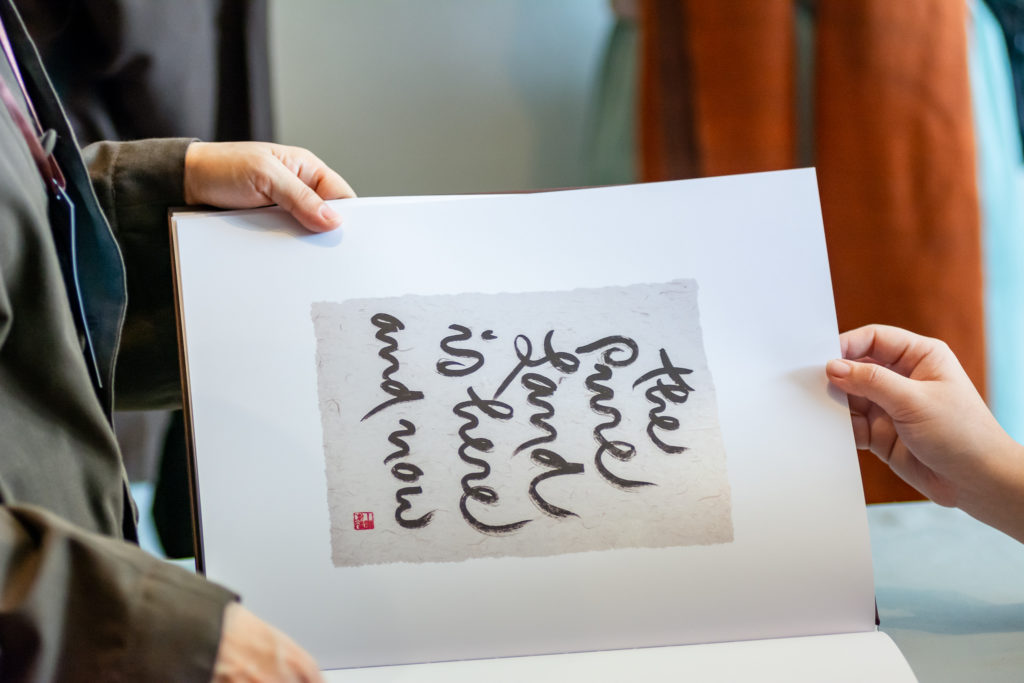 the
Pure
Land
is here
and now